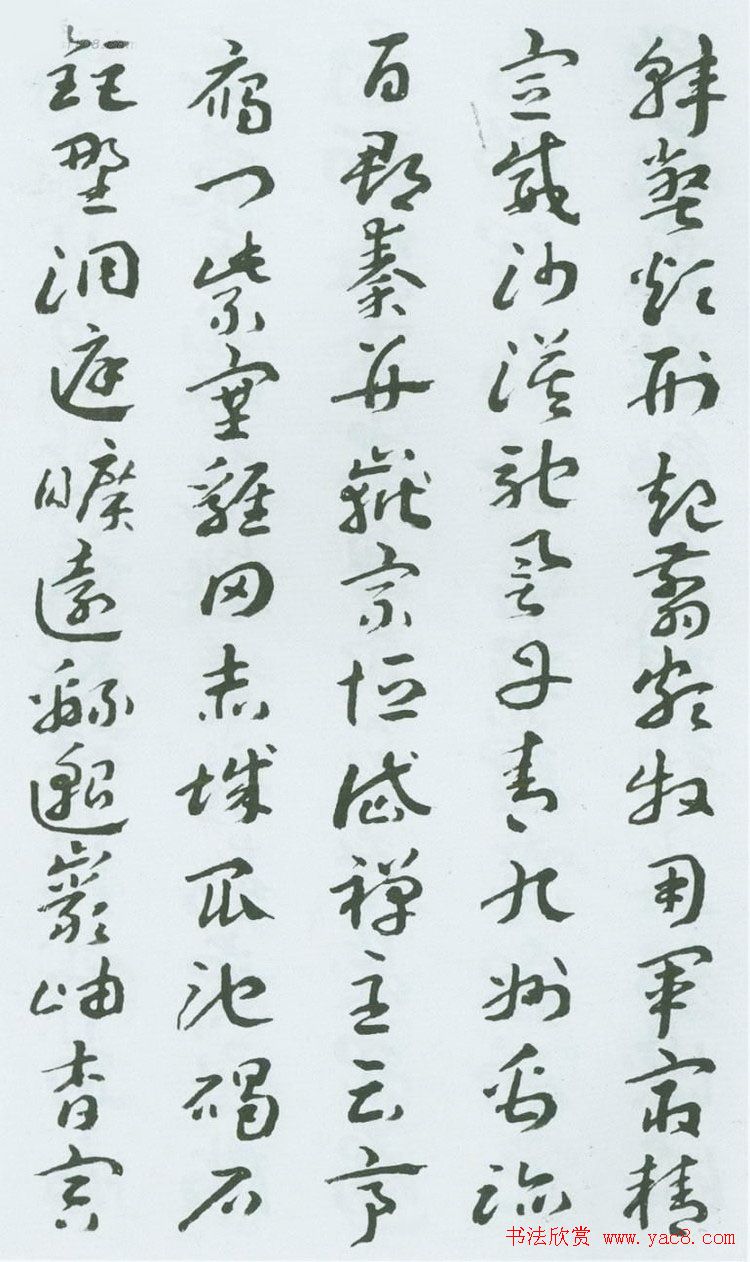 韓弊煩刑起翦頗牧用軍最精
宣威沙漠馳譽丹青九州禹跡
百郡秦并嶽宗恒岱禪主云亭
雁門紫塞雞田赤城昆池碣石
鉅野洞庭曠遠緜邈巖岫杳冥
书法欣赏 www.yac8.com